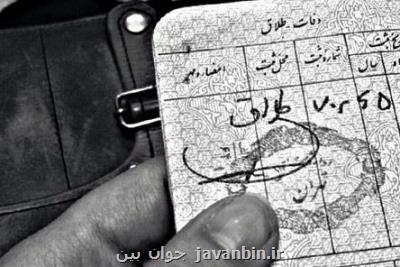 وفات ـ طلاق
امضاء و مهر محل ثبت شماره ثبت ثبت
سال
طلاق
تهران
جوان بین javanbin.ir